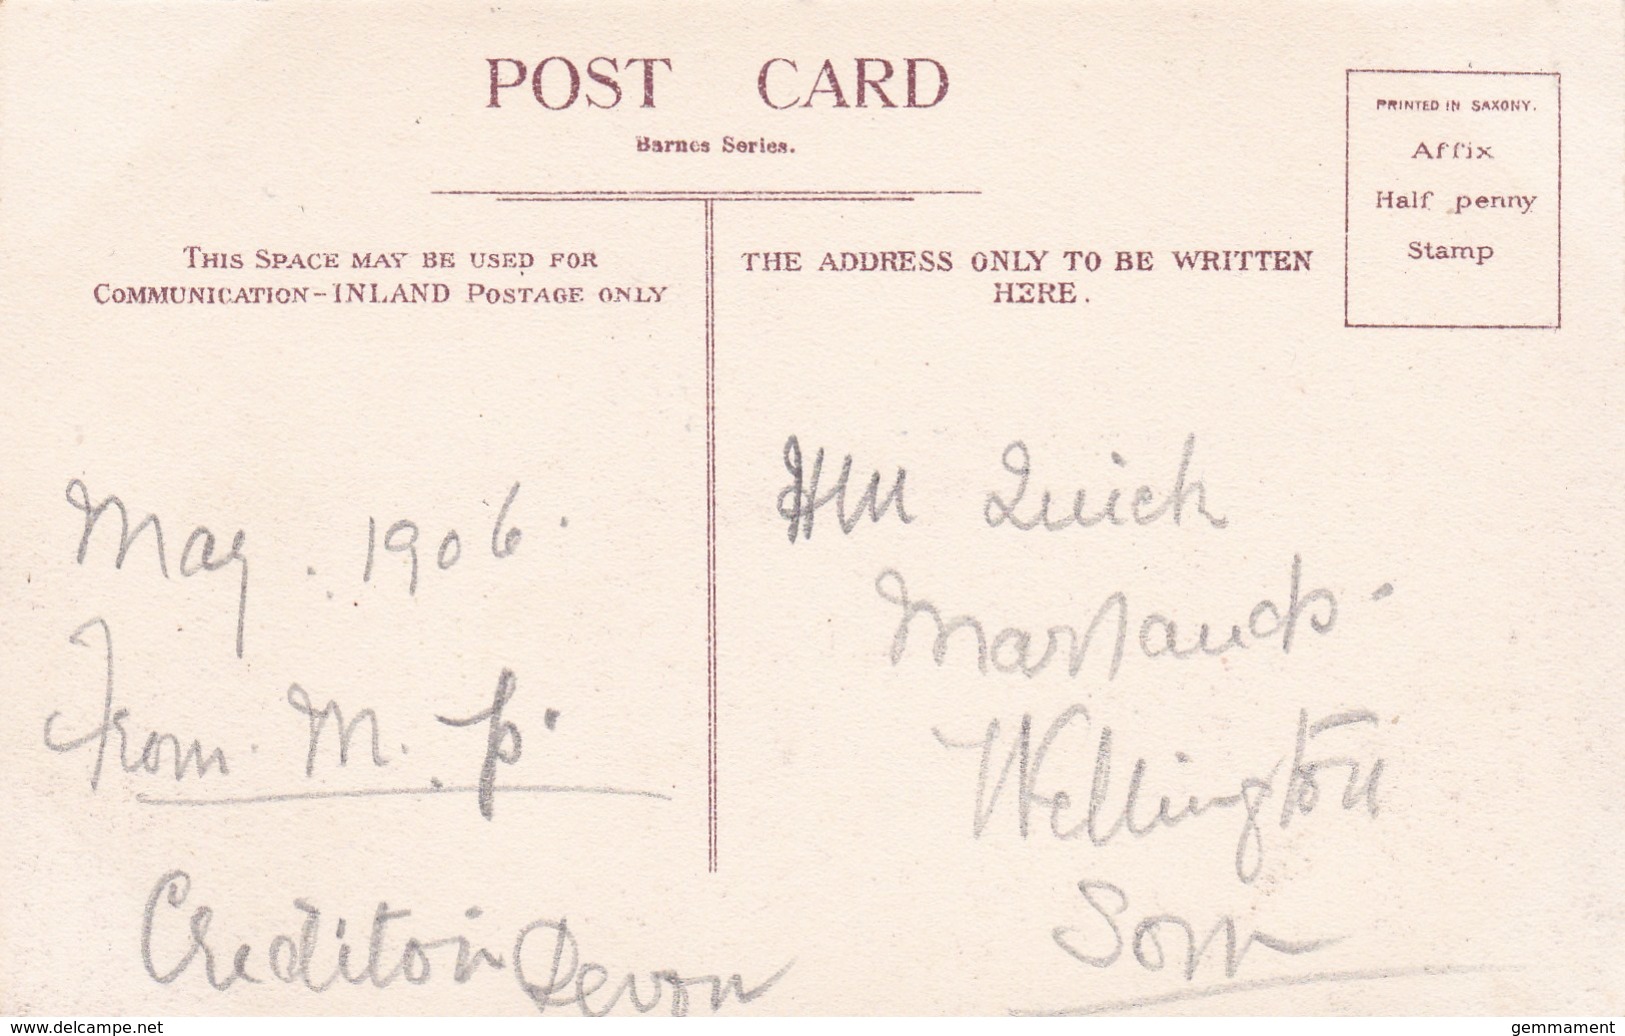 POST CARD
Barnes Series.
PRINTED IN SAXONY.
Affix
Half penny
Stamp
THIS SPACE MAY BE USED FOR
COMMUNICATION-INLAND POSTAGE ONLY
THE ADDRESS ONLY TO BE WRITTEN
HERE.
May. 1906.
From. M. p.
Crediton Devon
HM Quick
Marlands.
Wellington
Som
www.delcampe.net
gemmament